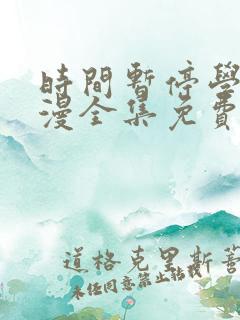 時間暫停學
漫全集免費
道格克里斯著
未任同意禁止轉載